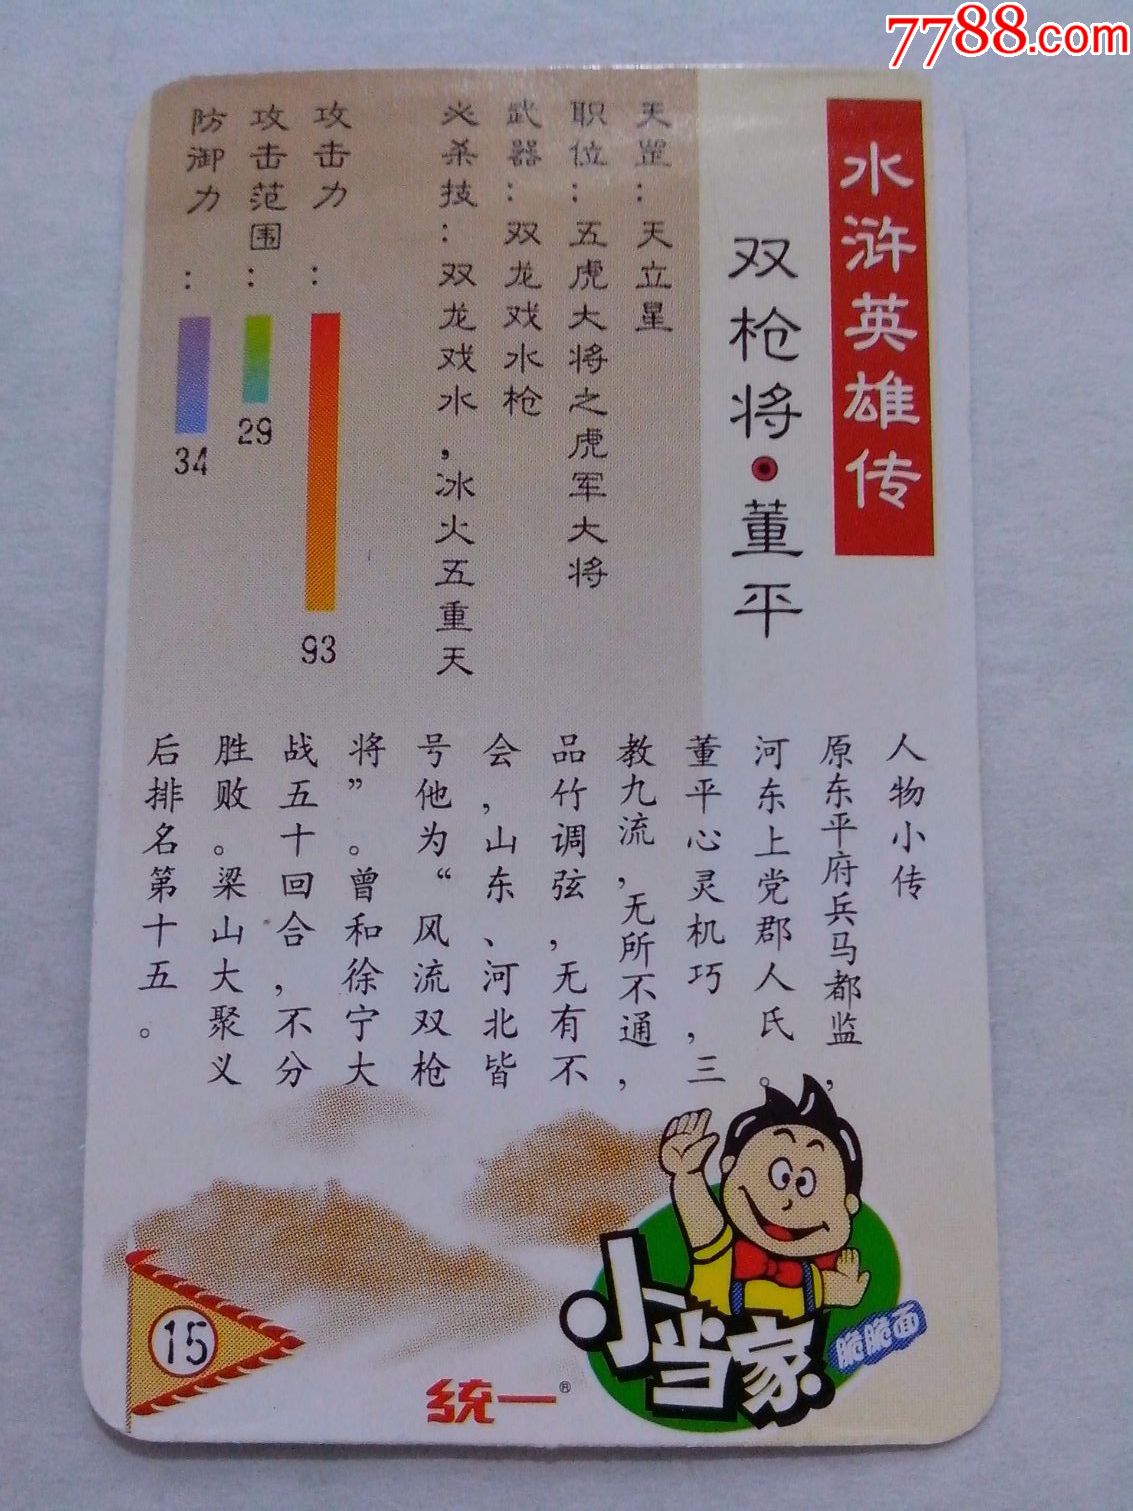 7788.com
水浒英雄传
双枪将·董平
天罡：天立星
职位：五虎大将之虎军大将
武器：双龙戏水枪
必杀技：双龙戏水，冰火五重天
攻击力：
93
攻击范围：
29
防御力：
34
人物小传
原东平府兵马都监，
河东上党郡人氏。
董平心灵机巧，三
教九流，无所不通，
品竹调弦，无有不
会，山东、河北皆
号他为“风流双枪
将”。曾和徐宁大
战五十回合，不分
胜败。梁山大聚义
后排名第十五。
15
统一®
小当家
脆脆面